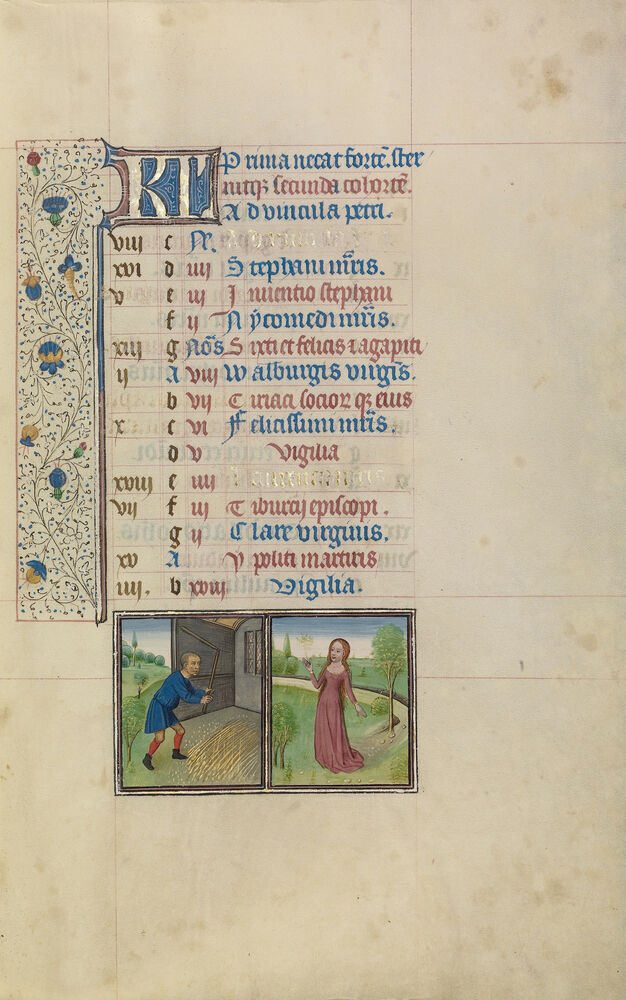 KL Prima necat fortē. ster
nitqȝ secunda cohortē.
Ad vincula petri.
viii c N̄.
xvi d iiii Stephani mr̄is.
v e iii Inuentio stephani
f ii Nycomedi mr̄is.
xiii g Nōs Sixti et felicis ⁊ agapiti
ii A viii Walburgis virgīs.
b vii Ciriaci socior qȝ eius
x c vi Felicissimi mr̄is.
d v Vigilia
xviii e iiii
vii f iii Tiburcij episcopi.
g ii Clare virginis.
xv A Ypoliti martiris
iiii. b xviii Vigilia.